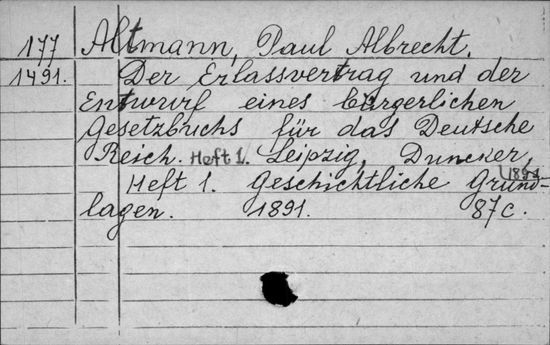 177 Altmann, Paul Albrecht.
1491. Der Erlassvertrag und der
Entwurf eines bürgerlichen
Gesetzbuchs für das Deutsche
Reich. Heft 1. Leipzig, Duncker,
1891
Heft 1. Geschichtliche Grund-
lagen. 1891. 87c.